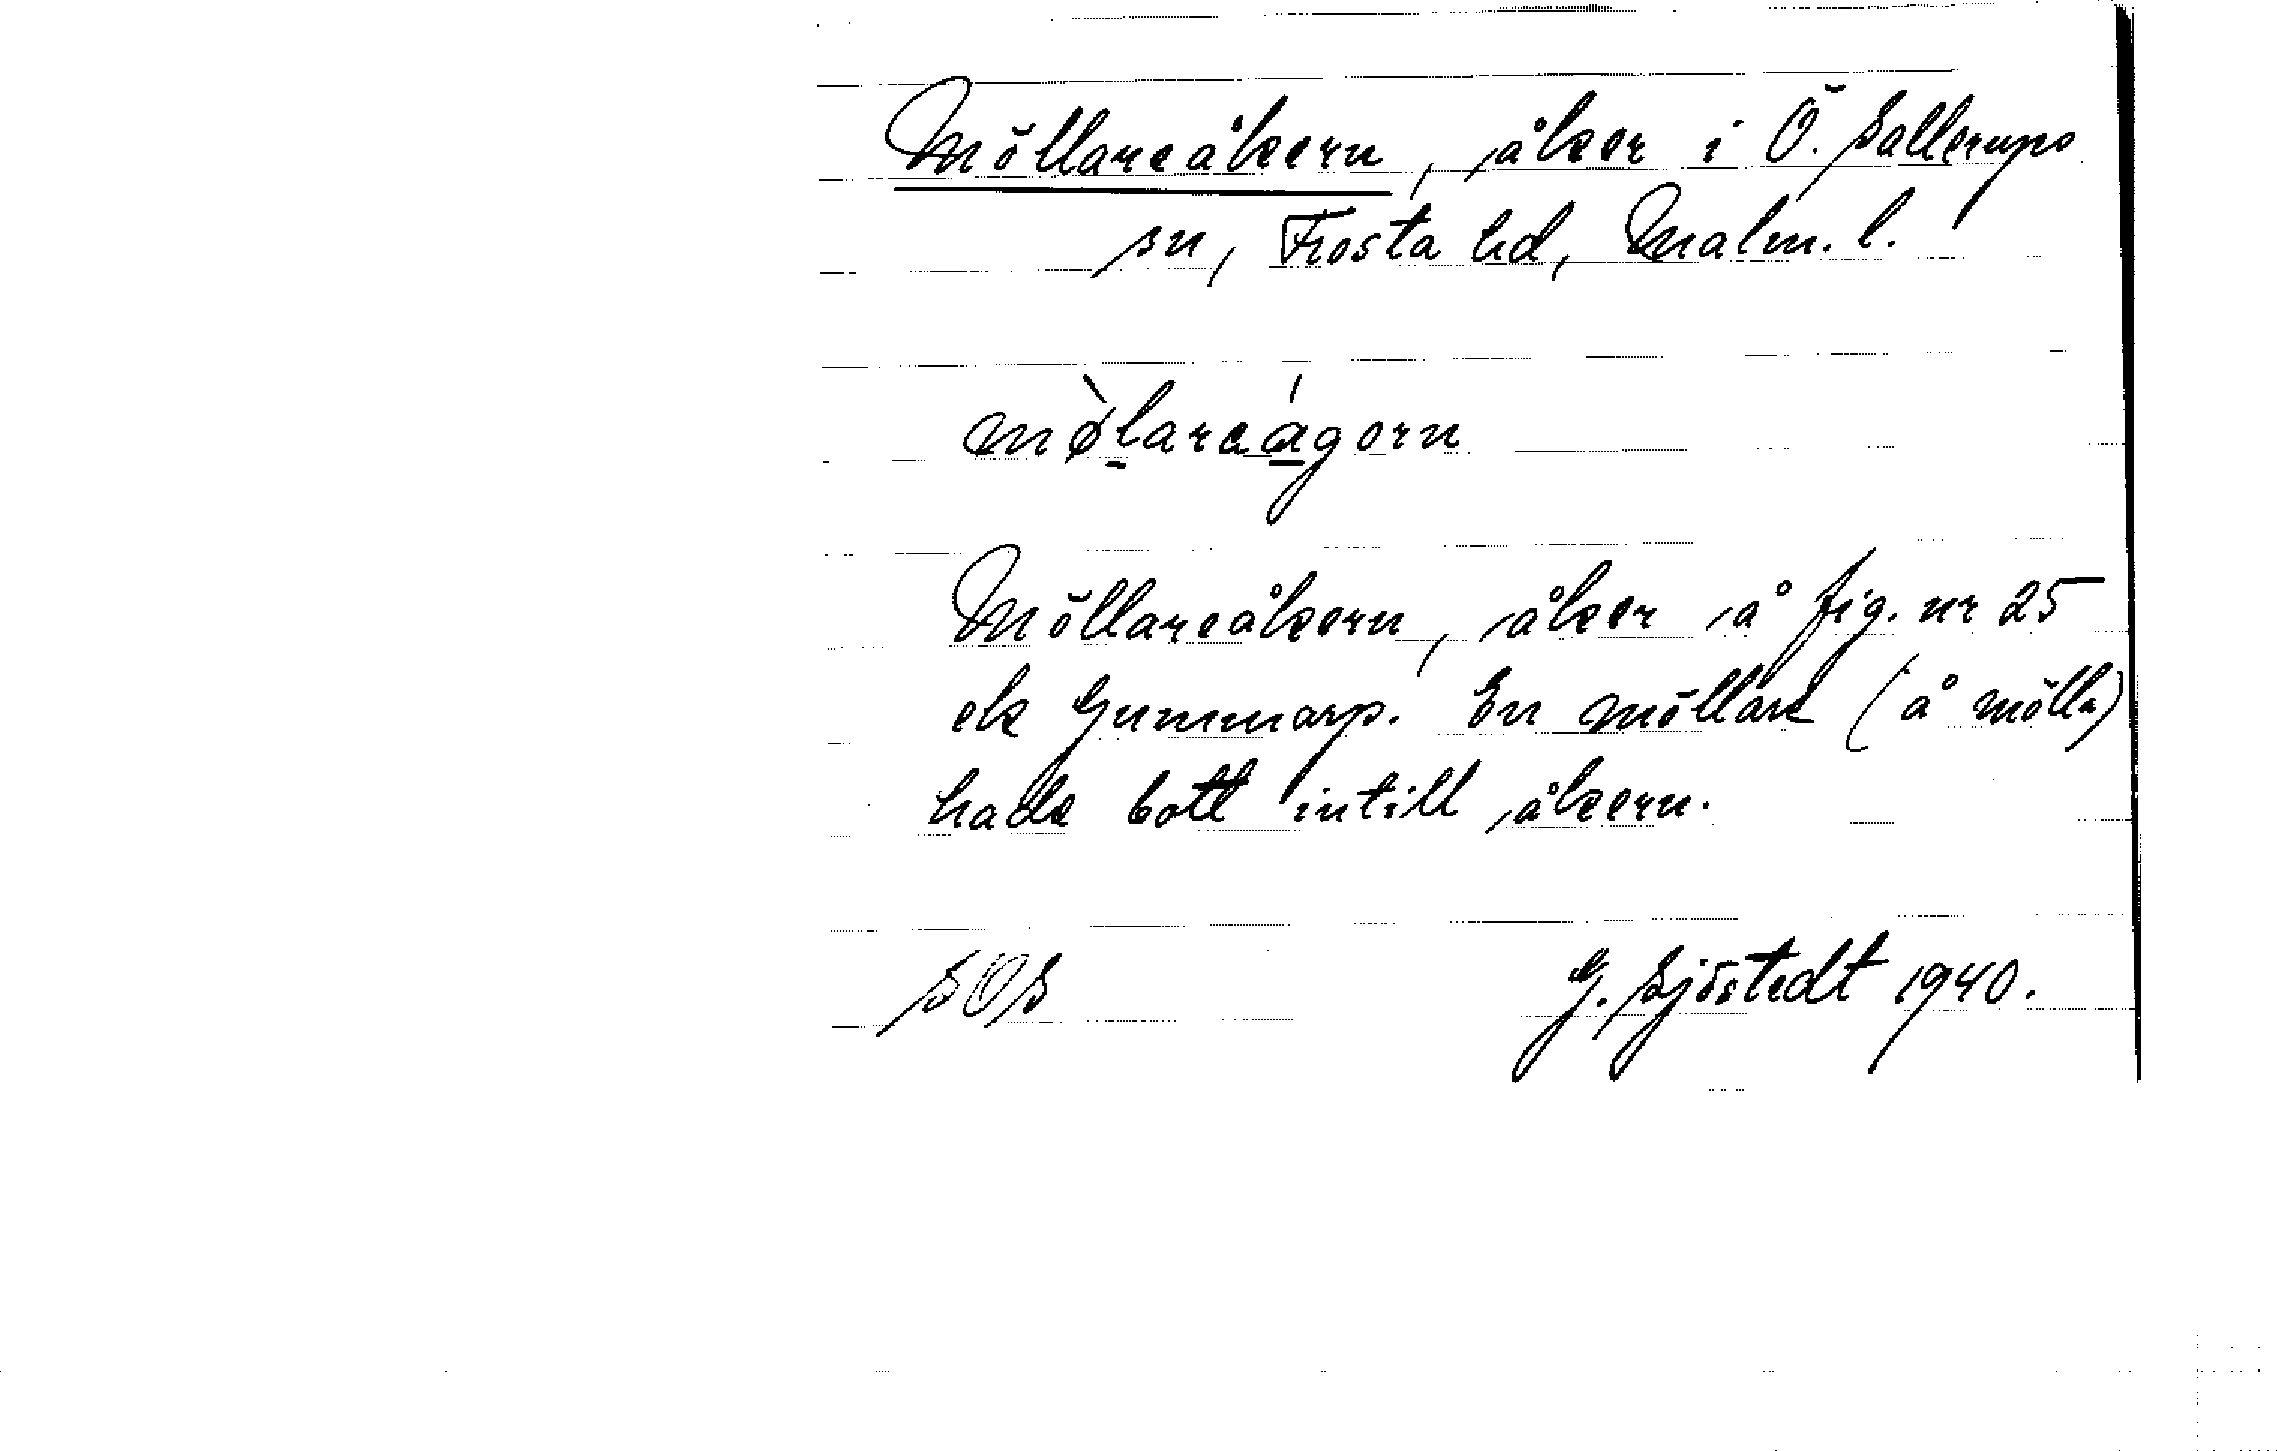 Möllareåkern, åker i Ö. Sallerups
sn, Frosta hd, Malm. l.
mø̀lareágorn
Möllareåkern, åker å fig. nr 25
ek Gummarp. En möllare (å mölla)
hade bott intill åkern.
SOS G. Sjöstedt 1940.